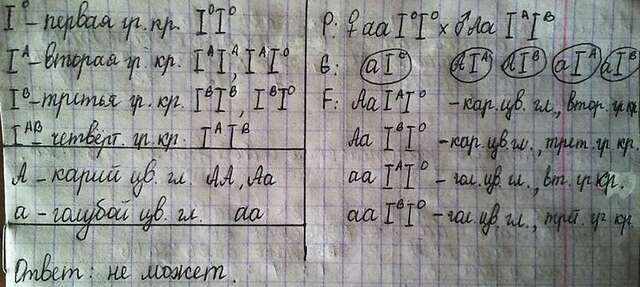 I⁰ - первая гр. кр. I⁰I⁰
Iᴬ - вторая гр. кр. IᴬIᴬ, IᴬI⁰
Iᴮ - третья гр. кр. IᴮIᴮ, IᴮI⁰
Iᴬᴮ - четверт. гр. кр. IᴬIᴮ
А - карий цв. гл. АА, Аа
а - голубой цв. гл. аа
Ответ: не может.
P: ♀ aa I⁰I⁰ × ♂ Aa IᴬIᴮ
G: aI⁰ AIᴬ AIᴮ aIᴬ aIᴮ
F: Aa IᴬI⁰ - кар. цв. гл., втор. гр. кр.
Aa IᴮI⁰ - кар. цв. гл., трет. гр. кр.
aa IᴬI⁰ - гол. цв. гл., вт. гр. кр.
aa IᴮI⁰ - гол. цв. гл., трет. гр. кр.